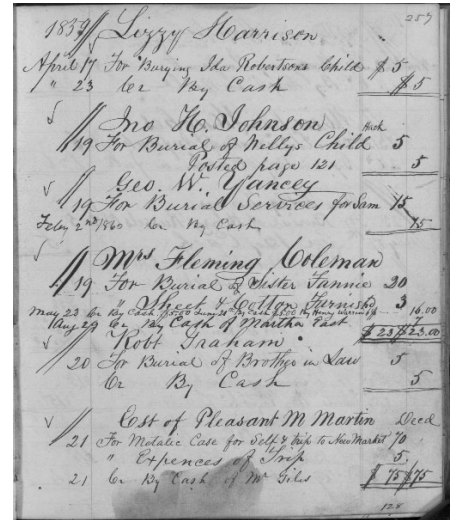 257
1859 Lizzy Harrison
April 17 For Burying Ida Robertsons Child $ 5
" 23 Cr By Cash $ 5
Jno H. Johnson
19 For Burial of Nellys Child 5
Posted page 121 5
Geo. W. Yancey
19 For Burial Services for Sam 15
Feby 2nd 1860 Cr By Cash 15
Mrs Fleming Coleman
19 For Burial of Sister Fannie 20
" Sheet & Cotton Furnishd 3
May 23 Cr By Cash $5.00 By Cash By Henry 16.00
Aug 29 Cr By Cash of Martha 7
$ 23 $ 23.00
Robt Graham
20 For Burial of Brother in Law 5
Cr By Cash 5
Est of Pleasant M Martin Decd
21 For Metalic Case for Self & Trip to New Market 70
" Expences of Trip 5
21 Cr By Cash of Mr Giles $ 75 $ 75
128